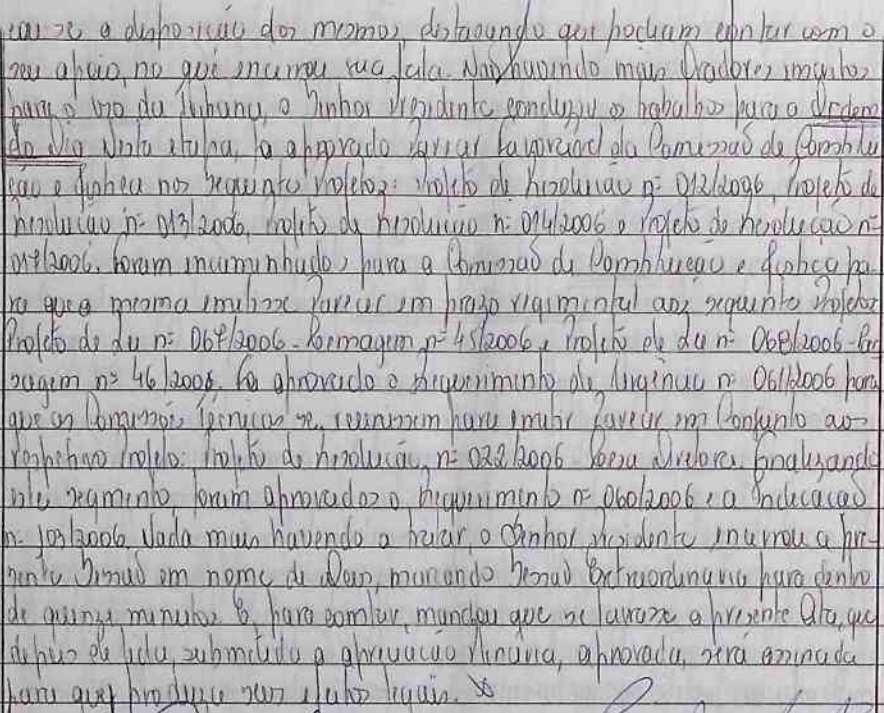 cou-se a disposição dos mesmos, destacando que podiam contar com o
seu apoio, no que encerrou sua fala. Não havendo mais Oradores inscritos
para o uso da Tribuna, o Senhor Presidente conduziu os trabalhos para a Ordem
do Dia. Nesta etapa, foi aprovado Parecer Favorável da Comissão de Constitui-
ção e Justiça nos seguintes Projetos: Projeto de Resolução nº 012/2006, Projeto de
Resolução nº 013/2006, Projeto de Resolução nº 014/2006 e Projeto de Resolução nº
017/2006. Foram encaminhados para a Comissão de Constituição e Justiça pa-
ra que a mesma emitisse Parecer em prazo regimental aos seguintes Projetos:
Projeto de Lei nº 067/2006 - Mensagem nº 45/2006 e Projeto de Lei nº 068/2006 - Men-
sagem nº 46/2006. Foi aprovado o Requerimento de Urgência nº 061/2006 para
que as Comissões Técnicas se reunissem para emitir Parecer em Conjunto ao
respectivo Projeto: Projeto de Resolução nº 022/2006 - Mesa Diretora. Finalizando
este segmento foram aprovados o Requerimento nº 060/2006 e a Indicação
nº 103/2006. Nada mais havendo a tratar, o Senhor Presidente encerrou a pre-
sente Sessão em nome de Deus, marcando Sessão Extraordinária para dentro
de quinze minutos. E, para constar, mandou que se lavrasse a presente Ata, que
depois de lida, submetida a apreciação Plenária, aprovada, será assinada
para que produza seus efeitos legais.